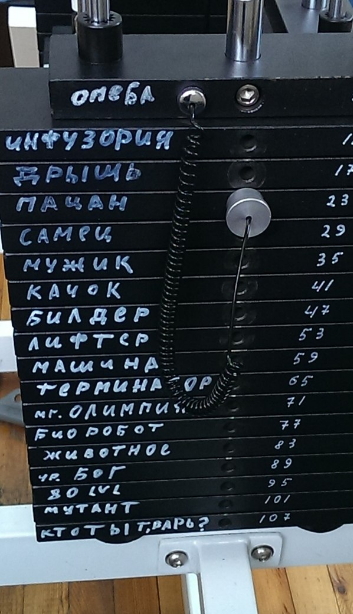 ОМЕБА
ИНФУЗОРИЯ
ДРЫЩЬ 17
ПАЦАН 23
САМЕЦ 29
МУЖИК 35
КАЧОК 41
БИЛДЕР 47
ЛИФТЕР 53
МАШИНА 59
ТЕРМИНАТОР 65
МГ. ОЛИМПИЯ 71
БИОРОБОТ 77
ЖИВОТНОЕ 83
ЧР. БОГ 89
80 LVL 95
МУТАНТ 101
КТО ТЫ ТВАРЬ? 107